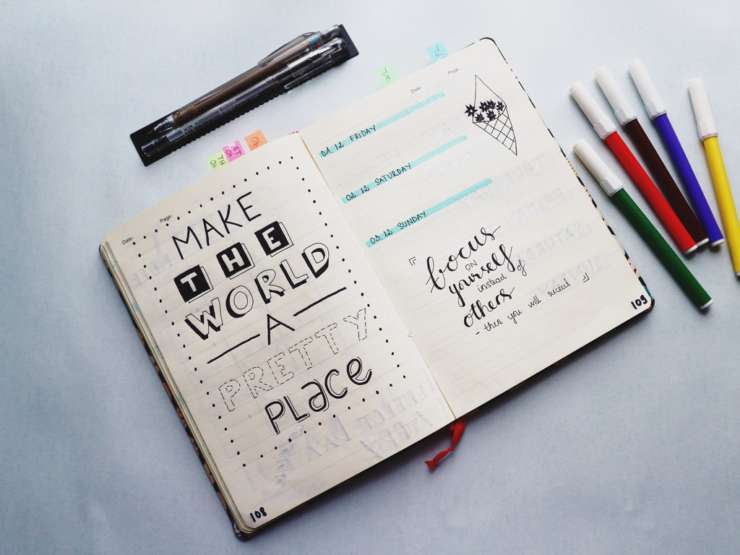 Date: Page:
MAKE
THE
WORLD
A
PRETTY
PLACE
108
Date: Page:
01.12 FRIDAY
02.12 SATURDAY
03.12 SUNDAY
focus
ON
yourself
instead of
others
- then you will succeed
109